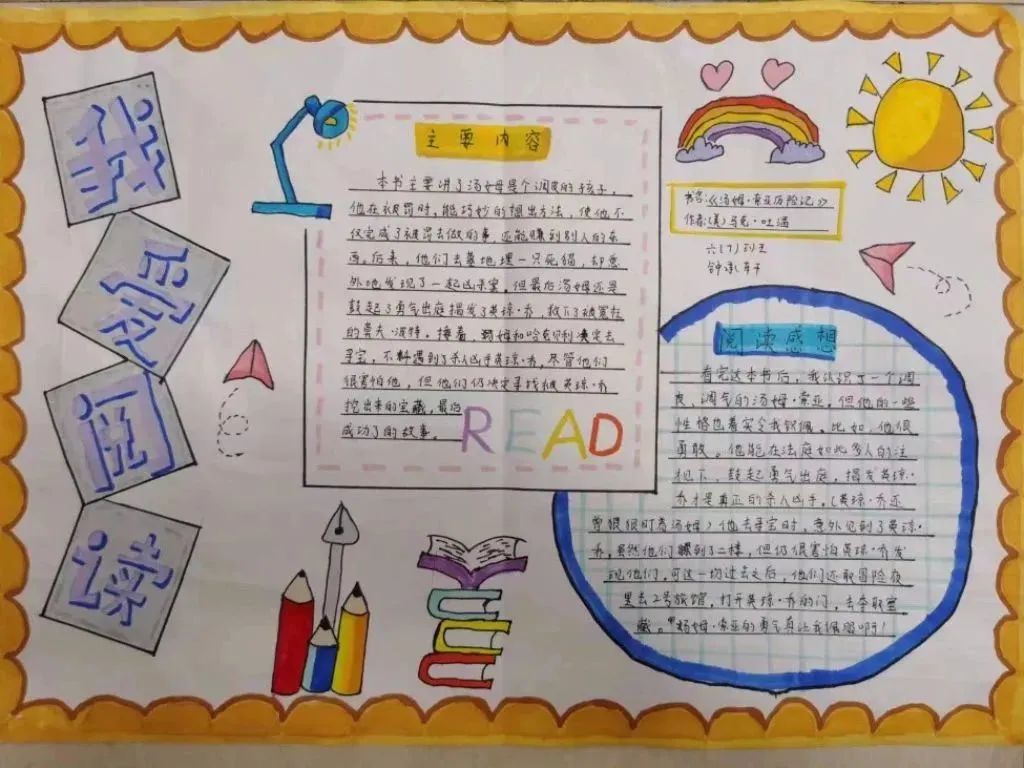 我爱阅读
主要内容
本书主要讲了汤姆是个调皮的孩子，
他在被罚时，能巧妙的想出方法，使他不
仅完成了被罚去做的事，还能赚到别人的东
西。后来，他们去墓地埋一只死猫，却意
外地发现了一起凶杀案。但最后汤姆还是
鼓起了勇气出庭揭发了英琼·乔，救下了被冤枉
的莫夫·波特。接着，汤姆和哈克贝利决定去
寻宝，不料遇到了杀人凶手英琼·乔，尽管他们
很害怕他，但他们仍决定寻找被英琼·乔
挖出来的宝藏，最后
成功了的故事。
READ
书名：《汤姆·索亚历险记》
作者：(美)马克·吐温
六(1)班
阅读感想
看完这本书后，我认识了一个调
皮、调气的汤姆·索亚。但他的一些
性格也着实令我钦佩。比如，他很
勇敢。他能在法庭如此多人的注
视下，鼓起勇气出庭，揭发英琼·
乔才是真正的杀人凶手。(英琼·乔还
曾狠狠盯着汤姆)他去寻宝时，意外见到了英琼·
乔，虽然他们躲到了二楼，但仍很害怕英琼·乔发
现他们。可这一切过去之后，他们还敢冒险夜
里去2号旅馆，打开英琼·乔的门，去夺取宝
藏。汤姆·索亚的勇气真让我佩服啊！